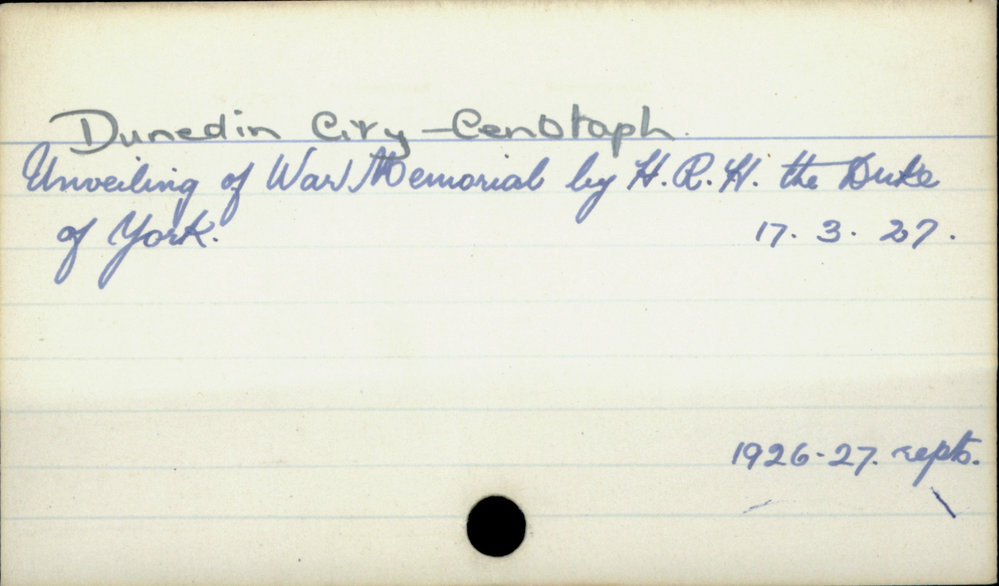 Dunedin City - Cenotaph.
Unveiling of War Memorial by H.R.H. the Duke
of York. 17. 3. 27.
1926-27. repts.